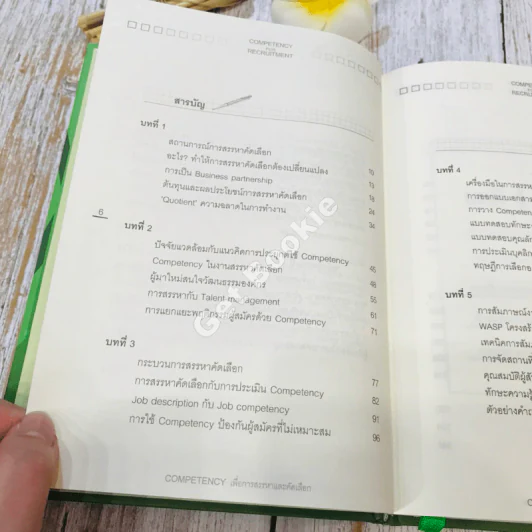 COMPETENCY
FOR
RECRUITMENT
สารบัญ
บทที่ 1
สถานการณ์การสรรหาคัดเลือก 10
อะไร? ทำให้การสรรหาคัดเลือกต้องเปลี่ยนแปลง 13
การเป็น Business partnership 18
ต้นทุนและผลประโยชน์การสรรหาคัดเลือก 24
'Quotient' ความฉลาดในการทำงาน 34
6
บทที่ 2
ปัจจัยแวดล้อมกับแนวคิดการประยุกต์ใช้ Competency 45
Competency ในงานสรรหาคัดเลือก 48
ผู้มาใหม่สนใจวัฒนธรรมองค์กร 55
การสรรหากับ Talent management 61
การแยกแยะพฤติกรรมผู้สมัครด้วย Competency 71
บทที่ 3
กระบวนการสรรหาคัดเลือก 77
การสรรหาคัดเลือกกับการประเมิน Competency 82
Job description กับ Job competency 91
การใช้ Competency ป้องกันผู้สมัครที่ไม่เหมาะสม 96
COMPETENCY เพื่อการสรรหาและคัดเลือก
บทที่ 4
เครื่องมือในการสรรห
การออกแบบเอกสาร
การวาง Compete
แบบทดสอบทักษะ
แบบทดสอบคุณลัก
การประเมินบุคลิก
ทฤษฎีการเลือกอ
บทที่ 5
การสัมภาษณ์ง
WASP โครงสร้
เทคนิคการสัมภ
การจัดสถานที่
คุณสมบัติผู้สั
ทักษะความรู้
ตัวอย่างคำถ
Get Bookie